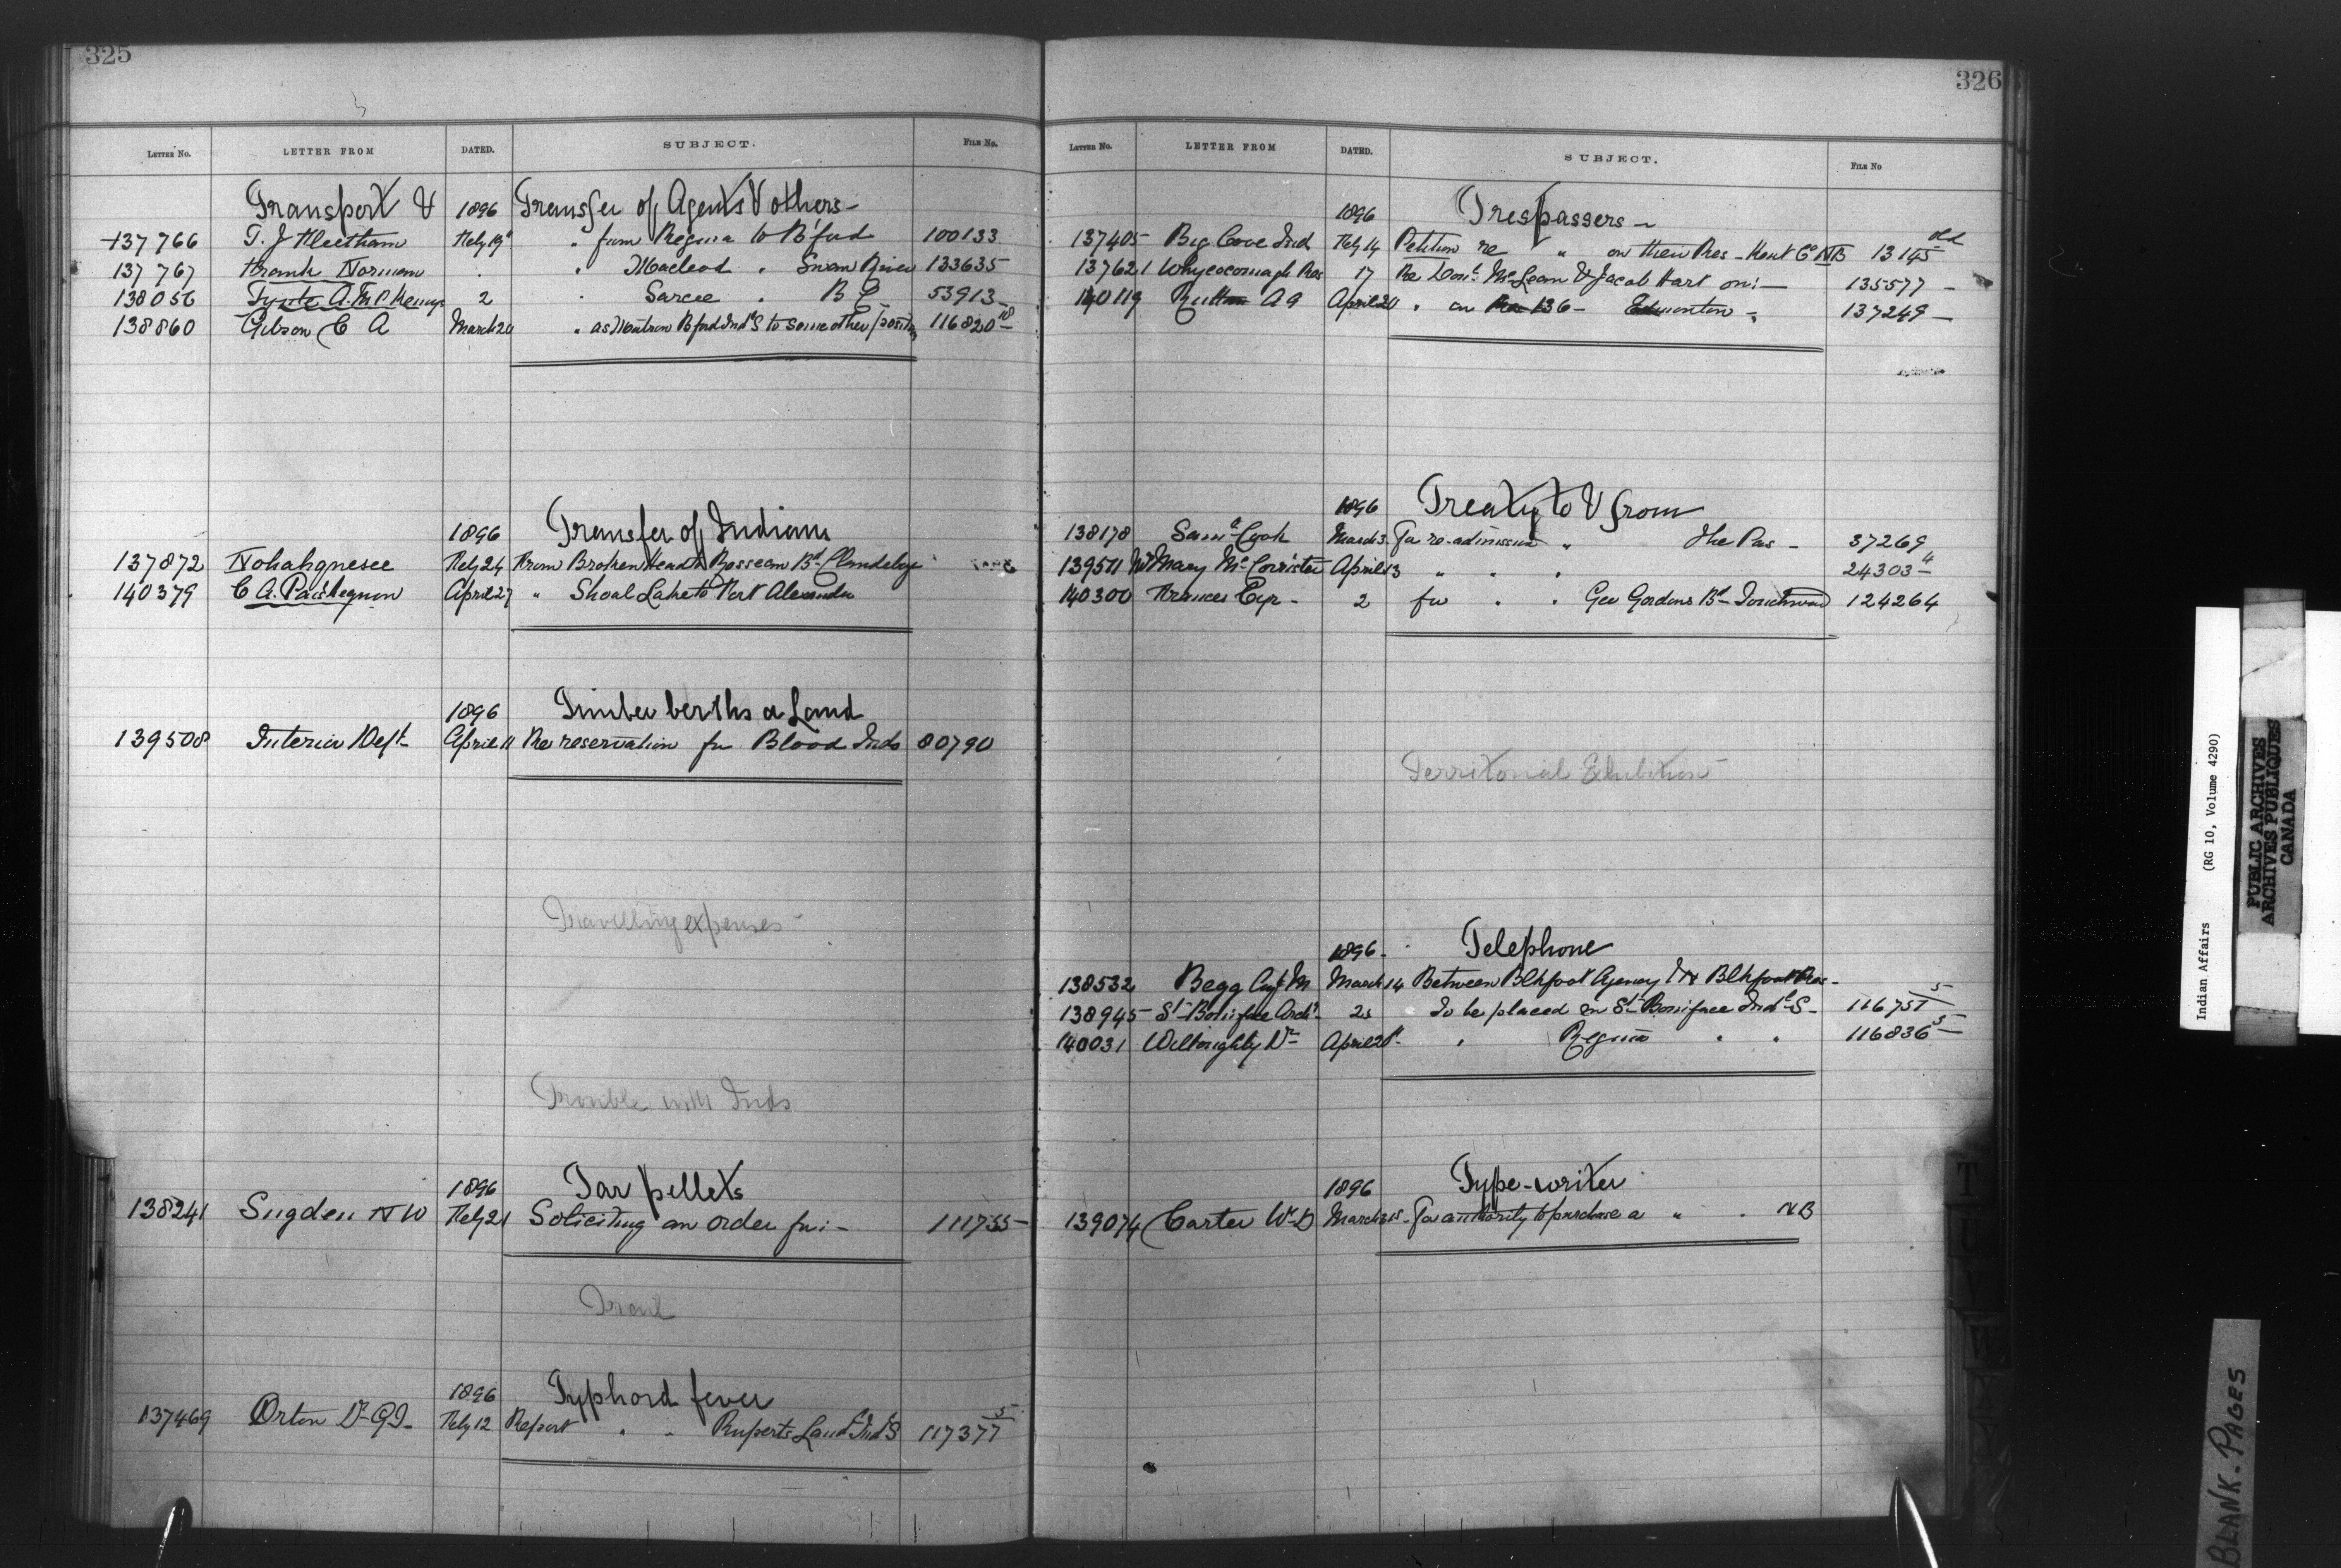 325
LETTER No. LETTER FROM DATED. SUBJECT. FILE No.
Transport & 1896 Transfer of Agents & others -
137766 T. J Fleetham Feby 19 " from Regina to B'ford 100133
137767 Frank Norman " " Macleod " Swan River 133635
138056 A. McP Kenya 2 " Sarcee " B C 53913
138860 Gibson C A March 20 " as Matron B'ford Ind S to some other position 116820-10
1896 Transfer of Indians
137872 Nohahgnesee Feby 24 From Broken Head to Rosseau Bd Clandeboye
140379 C A. Paishegnon April 27 " Shoal Lake to Fort Alexander
1896 Timber berths or Land
139508 Interior Dept April 11 Re reservation for Blood Inds 80790
Travelling expenses -
Trouble with Inds
1896 Tar pellets
138241 Sugden N W Feby 21 Soliciting an order for :- 111755-
1896 Typhoid fever
137469 Orton Dr G.T. Feby 12 Report " " Ruperts Land Ind S 117377-5
326
LETTER No. LETTER FROM DATED. SUBJECT. FILE No
1896 Trespassers -
137405 Big Cove Ind Feby 14 Petition re " " on their Res - Kent Co NB 13145 old
137621 Whycocomagh Res 17 Re Dond McLean & Jacob Hart on :- 135577 -
140119 Rutten A G April 20 " on Res 136 - Edmonton - 137249 -
1896 Treaty to & from
138178 Saml Cook March 3 For re-admission " The Pas - 37269
139511 Mrs Mary McCorrister April 13 " " " 24303-4
140300 Frances Cyr - 2 for " " Geo Gordons Bd - Touchwood 124264
Territorial Exhibition
1896 - Telephone
138532 Begg Capt M March 14 Between Blkfoot Agency & N Blkfoot Res -
138945 St Boniface Arch. 25 To be placed in St Boniface Indl S - 116751-5
140031 Willoughby Dr April 21 " Regina " " 116836-5
1896 Type-writer
139074 Carter Wm D March 15 - For authority to purchase a " " N B
Indian Affairs (RG 10, Volume 4290)
PUBLIC ARCHIVES
ARCHIVES PUBLIQUES
CANADA
BLANK. PAGES